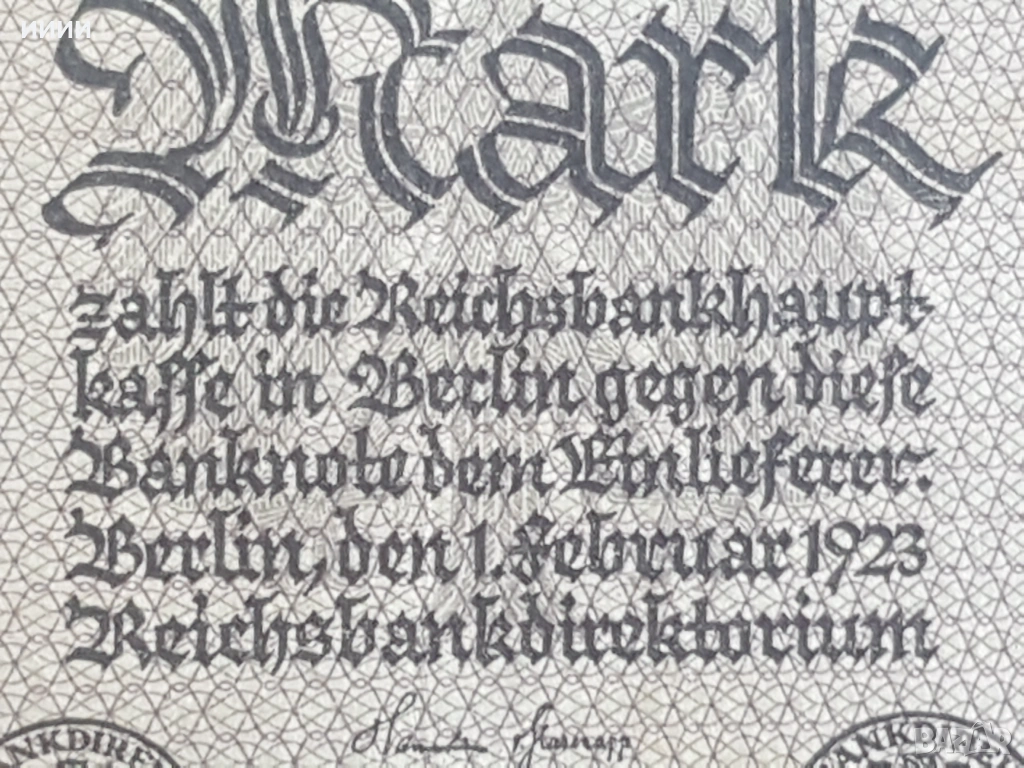 ИИИИ
Mark
zahlt die Reichsbankhaupt-
kasse in Berlin gegen diese
Banknote dem Einlieferer.
Berlin, den 1. Februar 1923
Reichsbankdirektorium
v. Glasenapp
NKDIRE
BANKDI
BAZAR